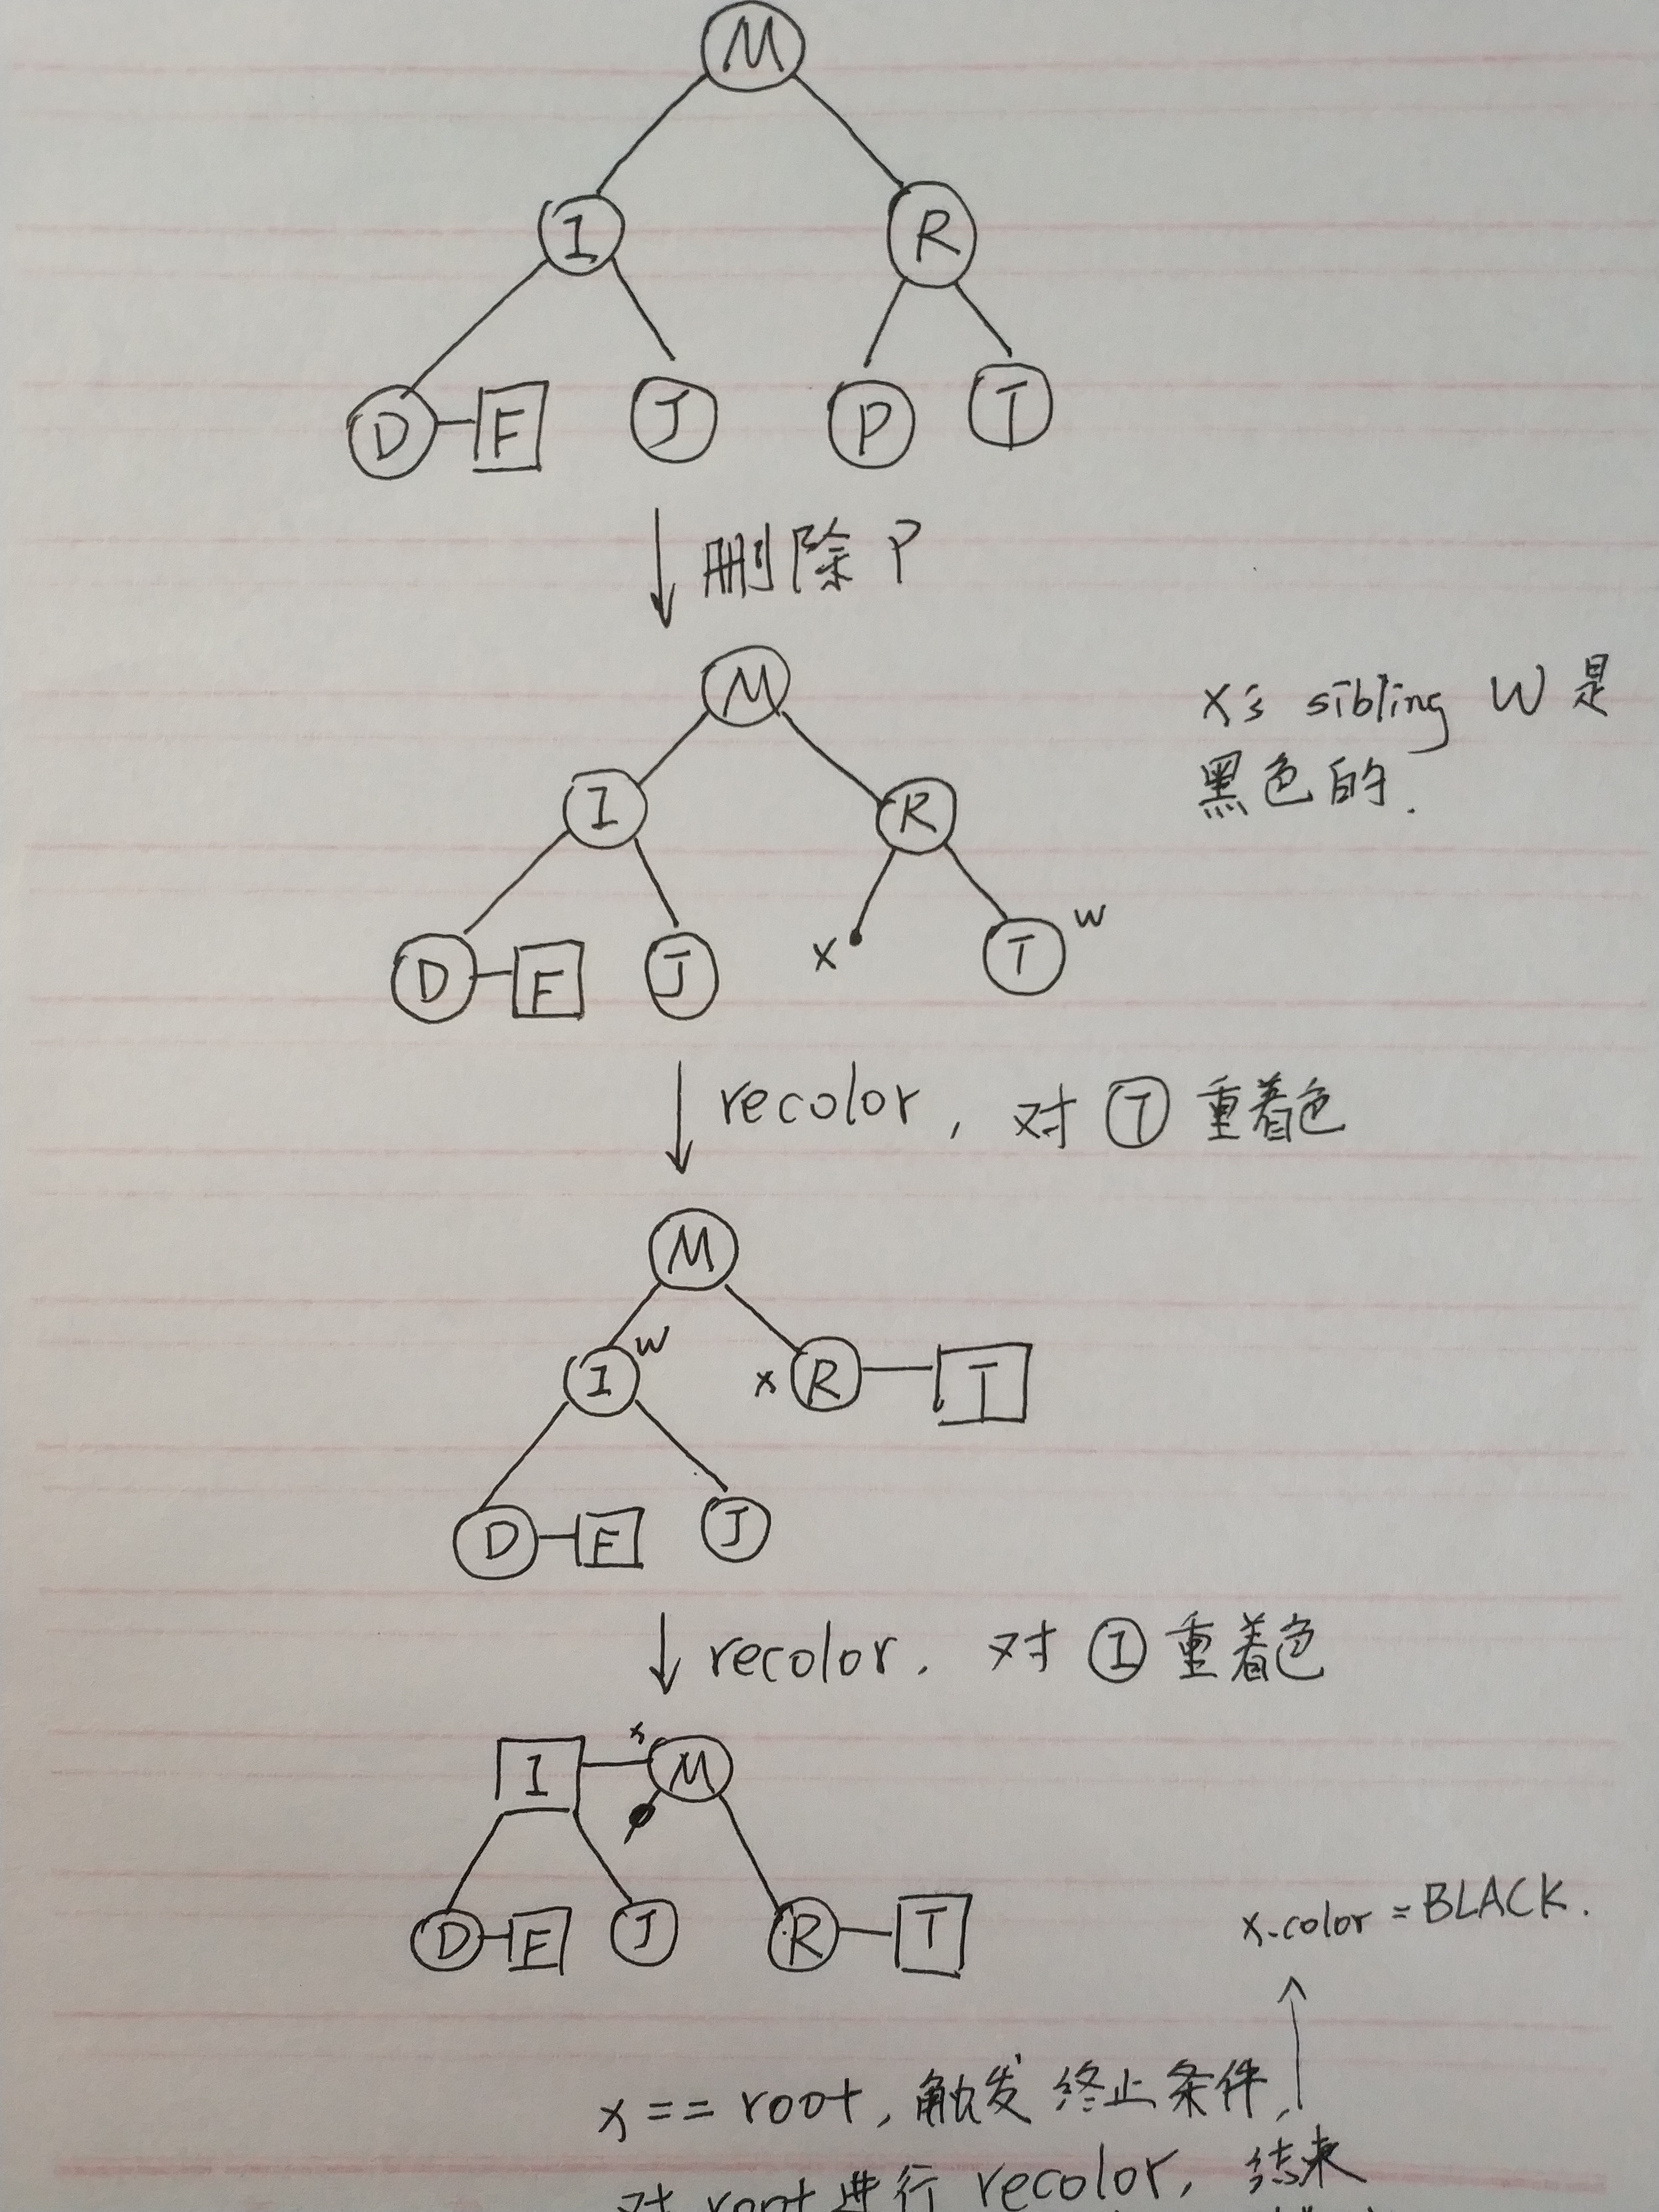 M
I R
D F J P T
删除 P
M
x's sibling W 是
黑色的.
I R
w
D F J x T
recolor, 对 T 重着色
M
w
I x R T
D F J
recolor. 对 I 重着色
x
I M
D F J R T
x.color = BLACK.
x == root, 触发终止条件,
对 root 进行 recolor, 结束